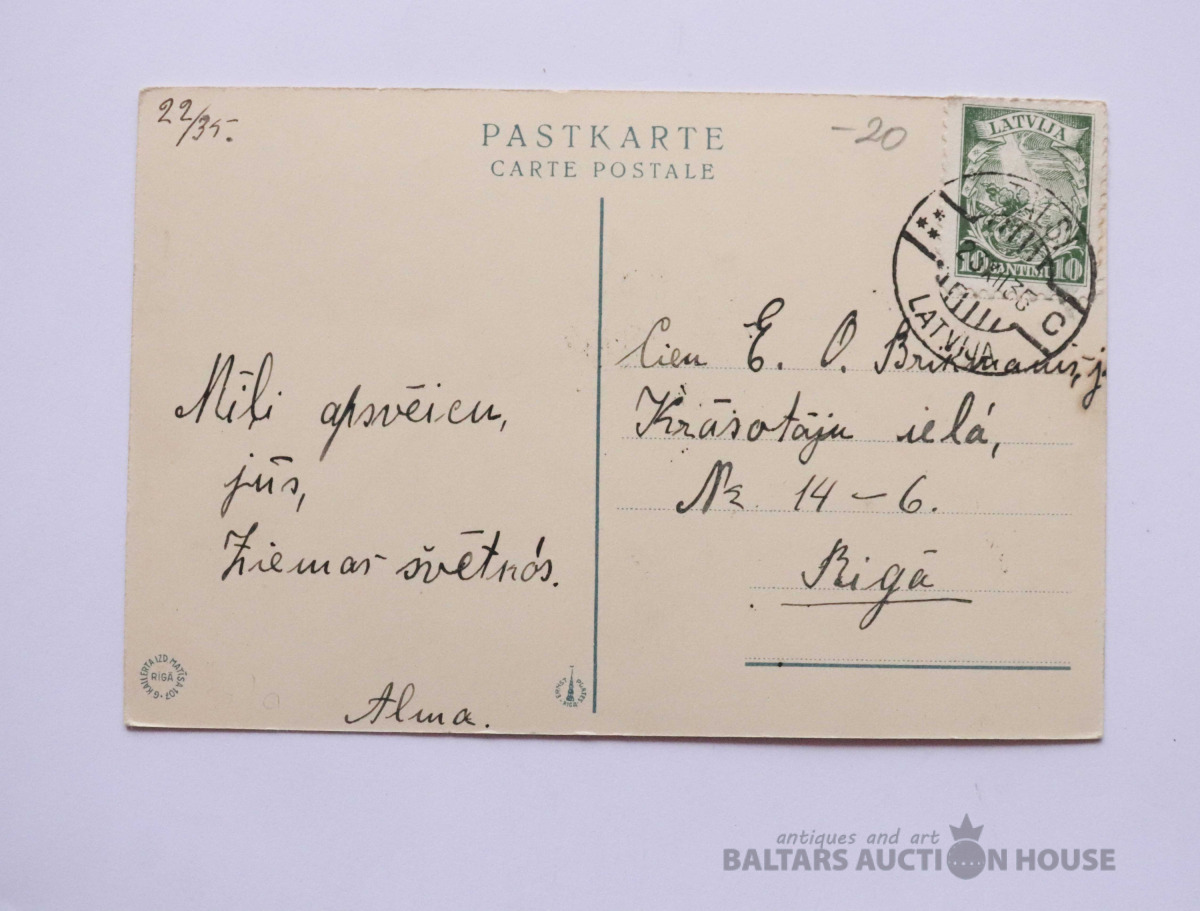 22/35.
PASTKARTE
CARTE POSTALE
-20
LATVIJA
10 SANTIMI 10
TALSI
20 XII 35
C
LATVIJA
Mīli apsvēicu,
jūs,
Ziemas švētkós.
Alma.
Cien E. O. Brikmanis, j.
Krāsotāju ielá,
Nr 14 – 6.
Rigā
G. KALLERTA IZD. MATĪSA 107
RIGĀ
antiques and art
BALTARS AUCTION HOUSE